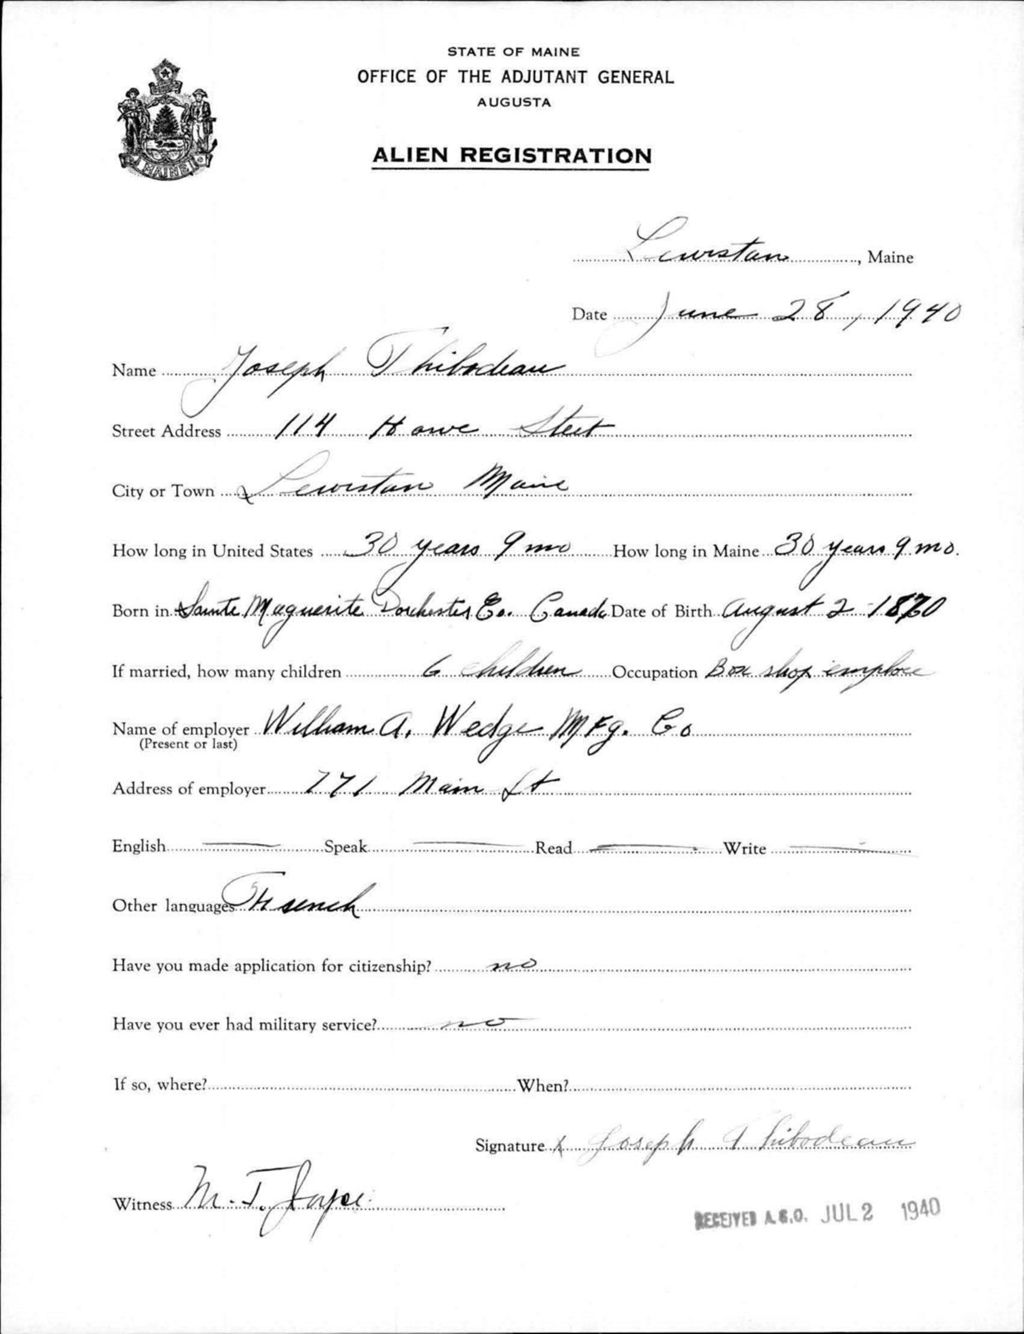 STATE OF MAINE
OFFICE OF THE ADJUTANT GENERAL
AUGUSTA
ALIEN REGISTRATION
MAINE
Lewiston, Maine
Date June 28, 1940
Name Joseph Thibodeau
Street Address 114 Howe Street
City or Town Lewiston Maine
How long in United States 30 years 9 mo How long in Maine 30 years 9 mo.
Born in Sainte Marguerite Dorchester Co. Canada Date of Birth August 2 1870
If married, how many children 6 children Occupation Box shop employee
Name of employer William A. Wedge Mfg. Co
(Present or last)
Address of employer 771 Main St
English — Speak — Read — Write —
Other languages French
Have you made application for citizenship? no
Have you ever had military service? no
If so, where? When?
Signature x Joseph Thibodeau
Witness M. T. Joyce
RECEIVED A.G.O. JUL 2 1940